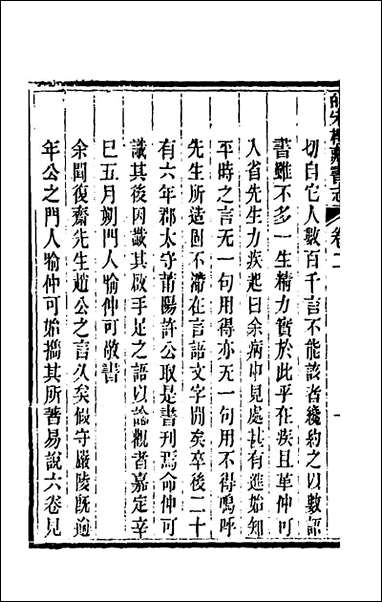 皕宋樓藏書志 卷二
切自它人數百千言不能該者幾約之以數語
書雖不多一生精力實於此乎在疾且革仲可
入省先生力疾起曰余病中見處甚有進始知
平時之言无一句用得亦无一句用不得嗚呼
先生所造固不滯在言語文字間矣卒後二十
有六年郡太守莆陽許公取是書刊焉命仲可
識其後因識其啟手足之語以諗觀者嘉定辛
巳五月朔門人喻仲可敬書
余聞復齋先生趙公之言久矣假守嚴陵旣逾
年公之門人喻仲可始攜其所著易說六卷見